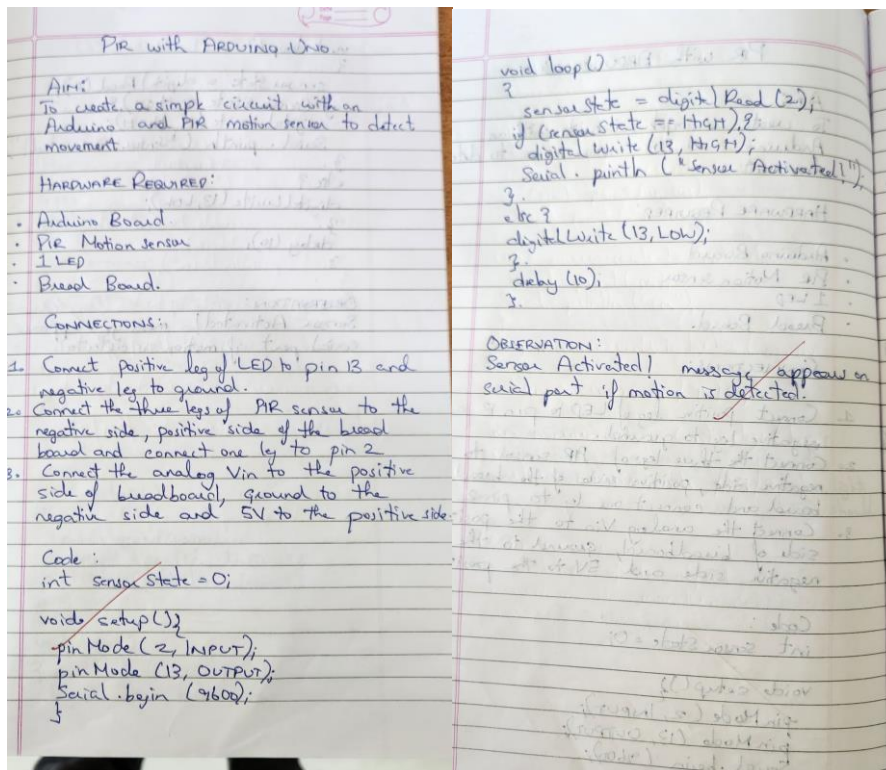 PIR with ARDUINO UNO
AIM:
To create a simple circuit with an
Arduino and PIR motion sensor to detect
movement
HARDWARE REQUIRED:
• Arduino Board
• PIR Motion sensor
• 1 LED
• Bread Board.
CONNECTIONS:
1. Connect Positive leg of LED to pin 13 and
negative leg to ground.
2. Connect the three legs of PIR sensor to the
negative side, positive side of the bread
board and connect one leg to pin 2
3. Connect the analog Vin to the positive
side of breadboard, ground to the
negative side and 5V to the positive side.
Code :
int sensor State = 0;
void setup(){
pinMode (2, INPUT);
pinMode (13, OUTPUT);
Serial.begin (9600);
}
void loop()
{
sensorState = digitalRead (2);
if (sensorState == HIGH) {
digitalWrite (13, HIGH);
Serial.println ("Sensor Activated!");
}
else {
digitalWrite (13, LOW);
}
delay (10);
}
OBSERVATION:
Sensor Activated! message appears on
serial port if motion is detected.